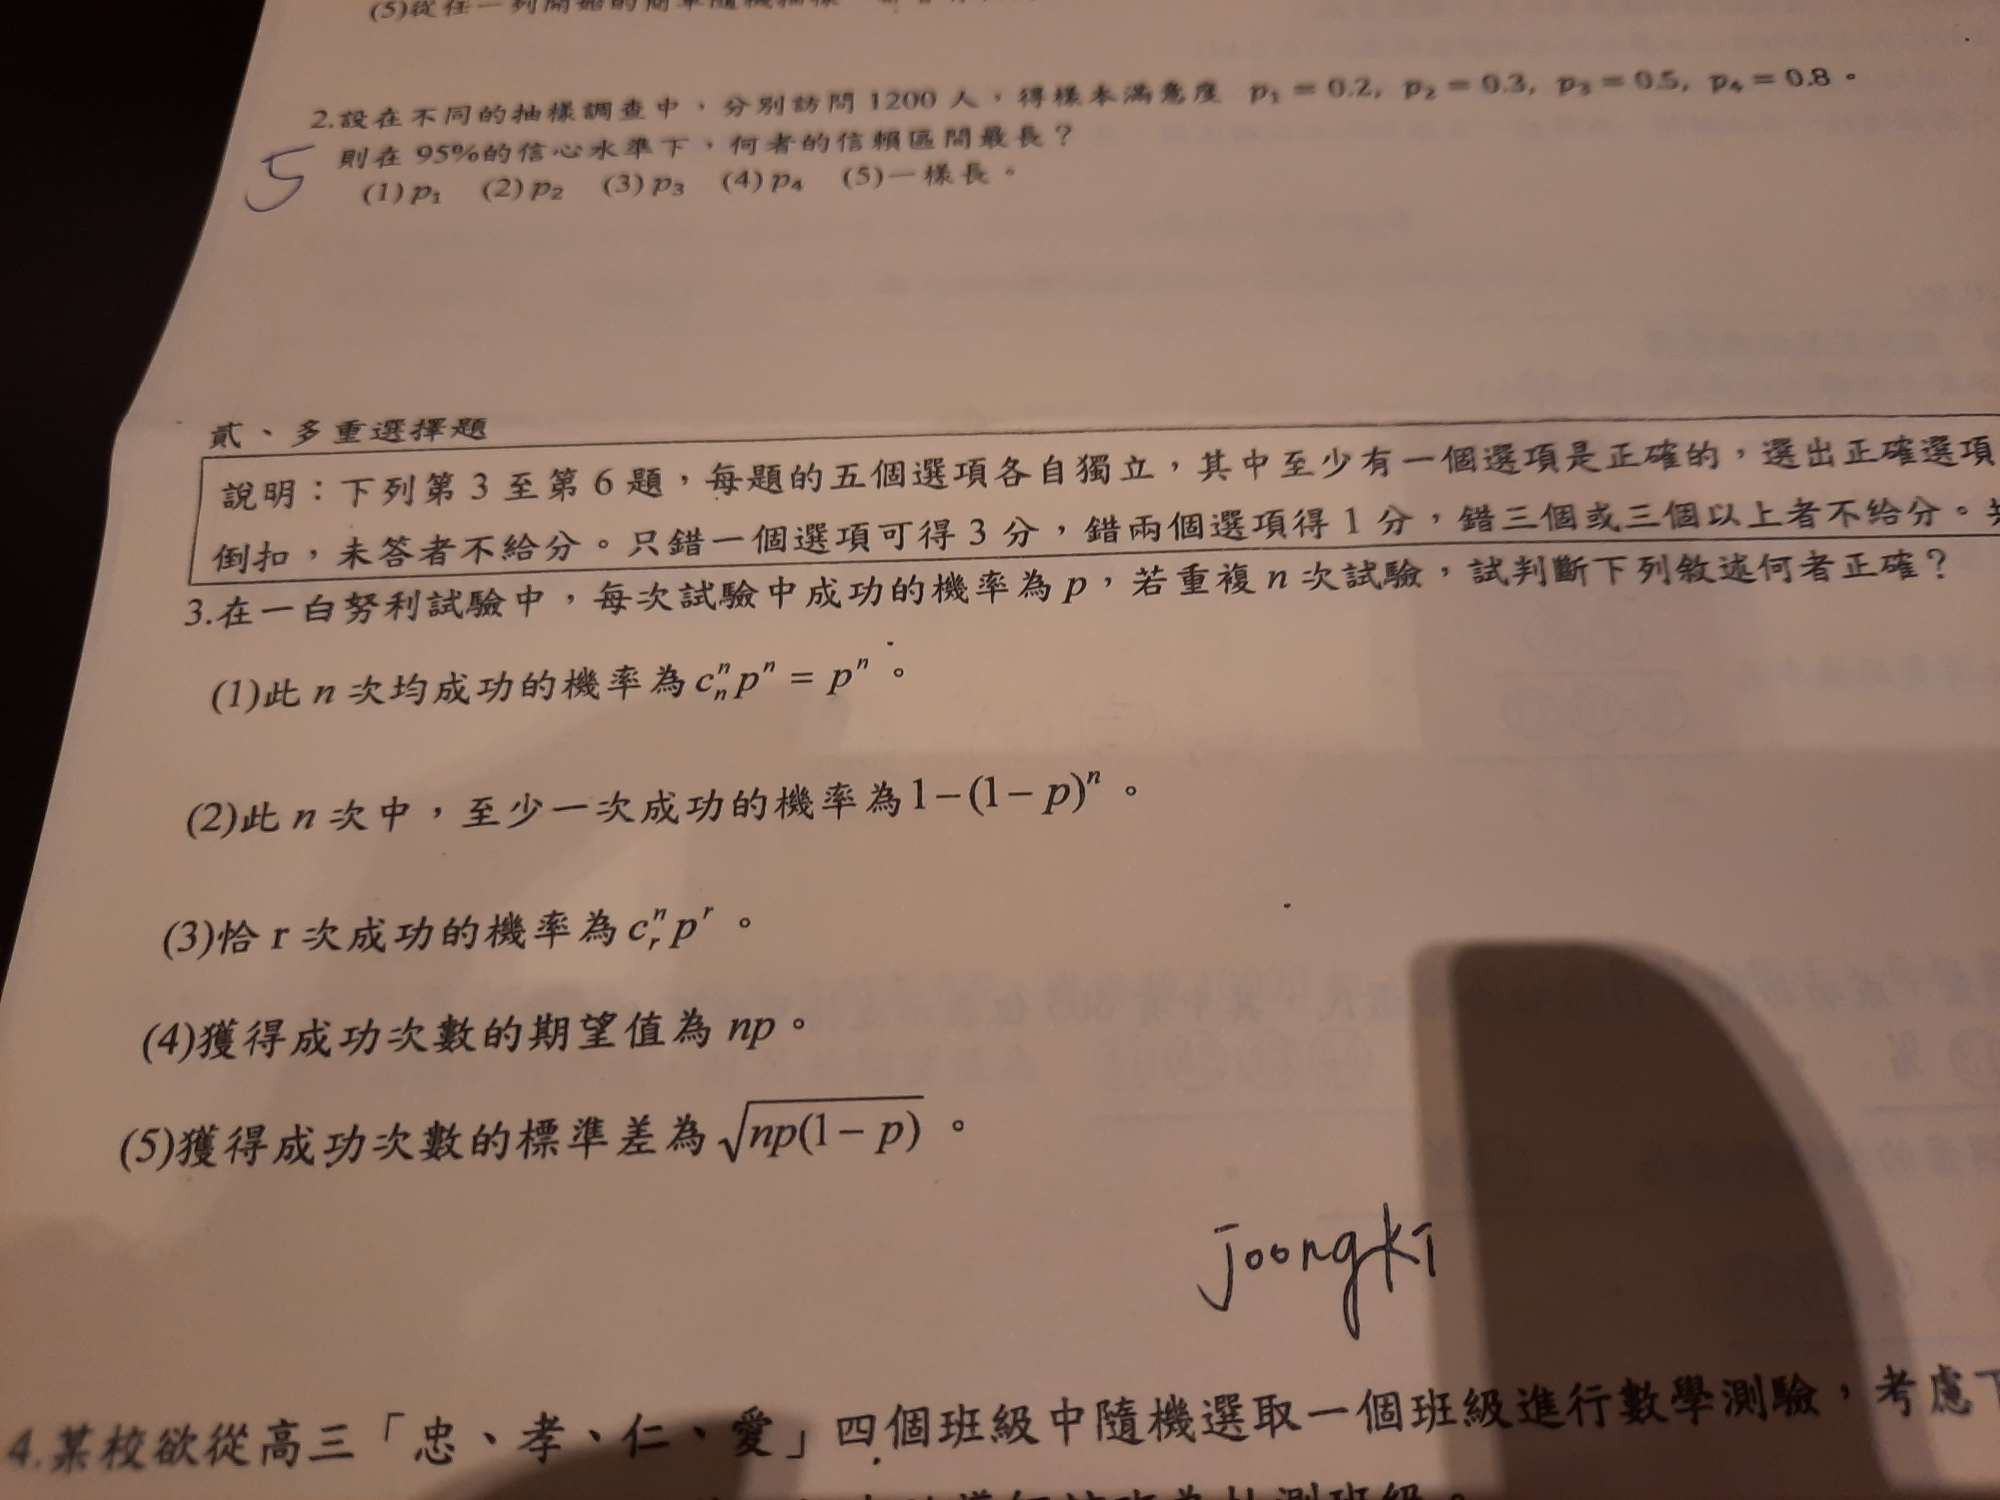 (5)從任一列開始的簡單隨機抽樣
2.設在不同的抽樣調查中，分別訪問 1200 人，得樣本滿意度 p₁ = 0.2, p₂ = 0.3, p₃ = 0.5, p₄ = 0.8。
則在 95%的信心水準下，何者的信賴區間最長？
5
(1) p₁ (2) p₂ (3) p₃ (4) p₄ (5)一樣長。
貳、多重選擇題
說明：下列第 3 至第 6 題，每題的五個選項各自獨立，其中至少有一個選項是正確的，選出正確選項
倒扣，未答者不給分。只錯一個選項可得 3 分，錯兩個選項得 1 分，錯三個或三個以上者不給分。
3.在一白努利試驗中，每次試驗中成功的機率為 p，若重複 n 次試驗，試判斷下列敘述何者正確？
(1)此 n 次均成功的機率為 cₙⁿpⁿ = pⁿ。
(2)此 n 次中，至少一次成功的機率為 1−(1−p)ⁿ。
(3)恰 r 次成功的機率為 cᵣⁿpʳ。
(4)獲得成功次數的期望值為 np。
(5)獲得成功次數的標準差為 √np(1−p)。
joongki
4.某校欲從高三「忠、孝、仁、愛」四個班級中隨機選取一個班級進行數學測驗，考慮下